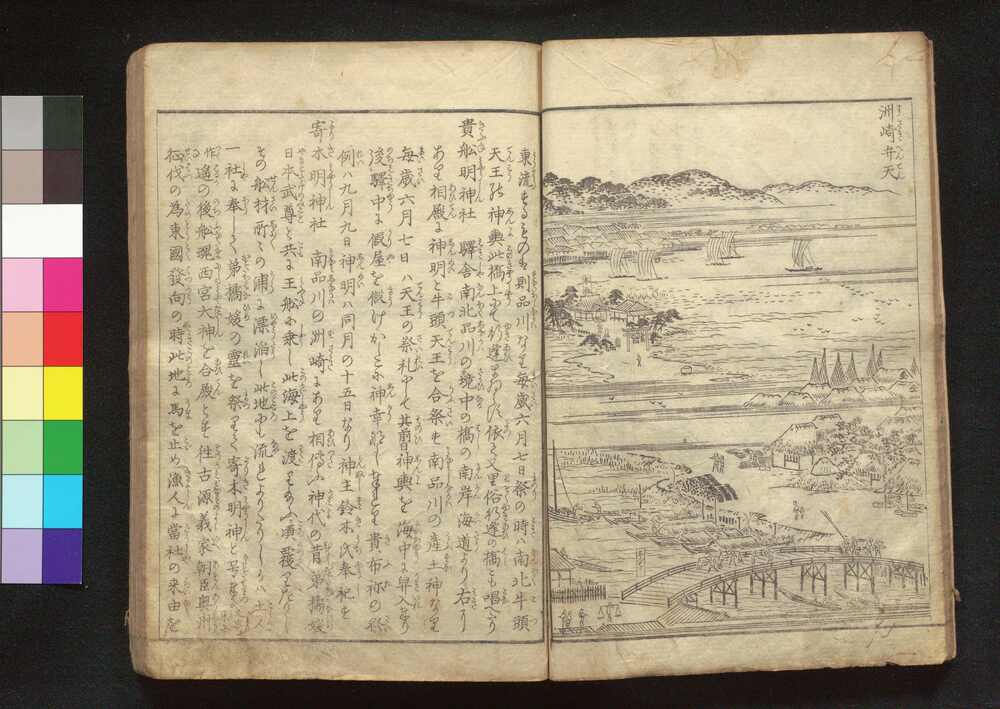 洲崎弁天
東流するものは則品川なり毎歳六月七日祭の時ハ南北牛頭
天王の神輿此橋上にて行逢ふ 依之又里俗行逢の橋とも唱へり
貴舩明神社 驛舎南北品川の境中の橋の南岸海道より右り
あり相殿に神明と牛頭天王を合祭す南品川の産土神なり
毎歳六月七日ハ天王の祭礼にて其前神輿を海中に舁入奉り
後驛中に假屋を假けかしこに神幸 貴布祢の祭
例ハ九月九日神明ハ同月の十五日なり神主鈴木氏奉祀す
寄木明神社 南品川の洲崎にあり相傳ふ神代の昔弟橘媛
日本武尊と共に王舩に乗し此海上を渡
その舩材所々の浦に漂泊し此地にも流れよりたりしかハ土人
一社に奉して弟橘媛の靈を祭りて寄木明神と号
遙の後 西宮大神を合殿とす往古源義家朝臣奥州
征伐の為東國發向の時此地に馬を止め漁人に當社の来由を